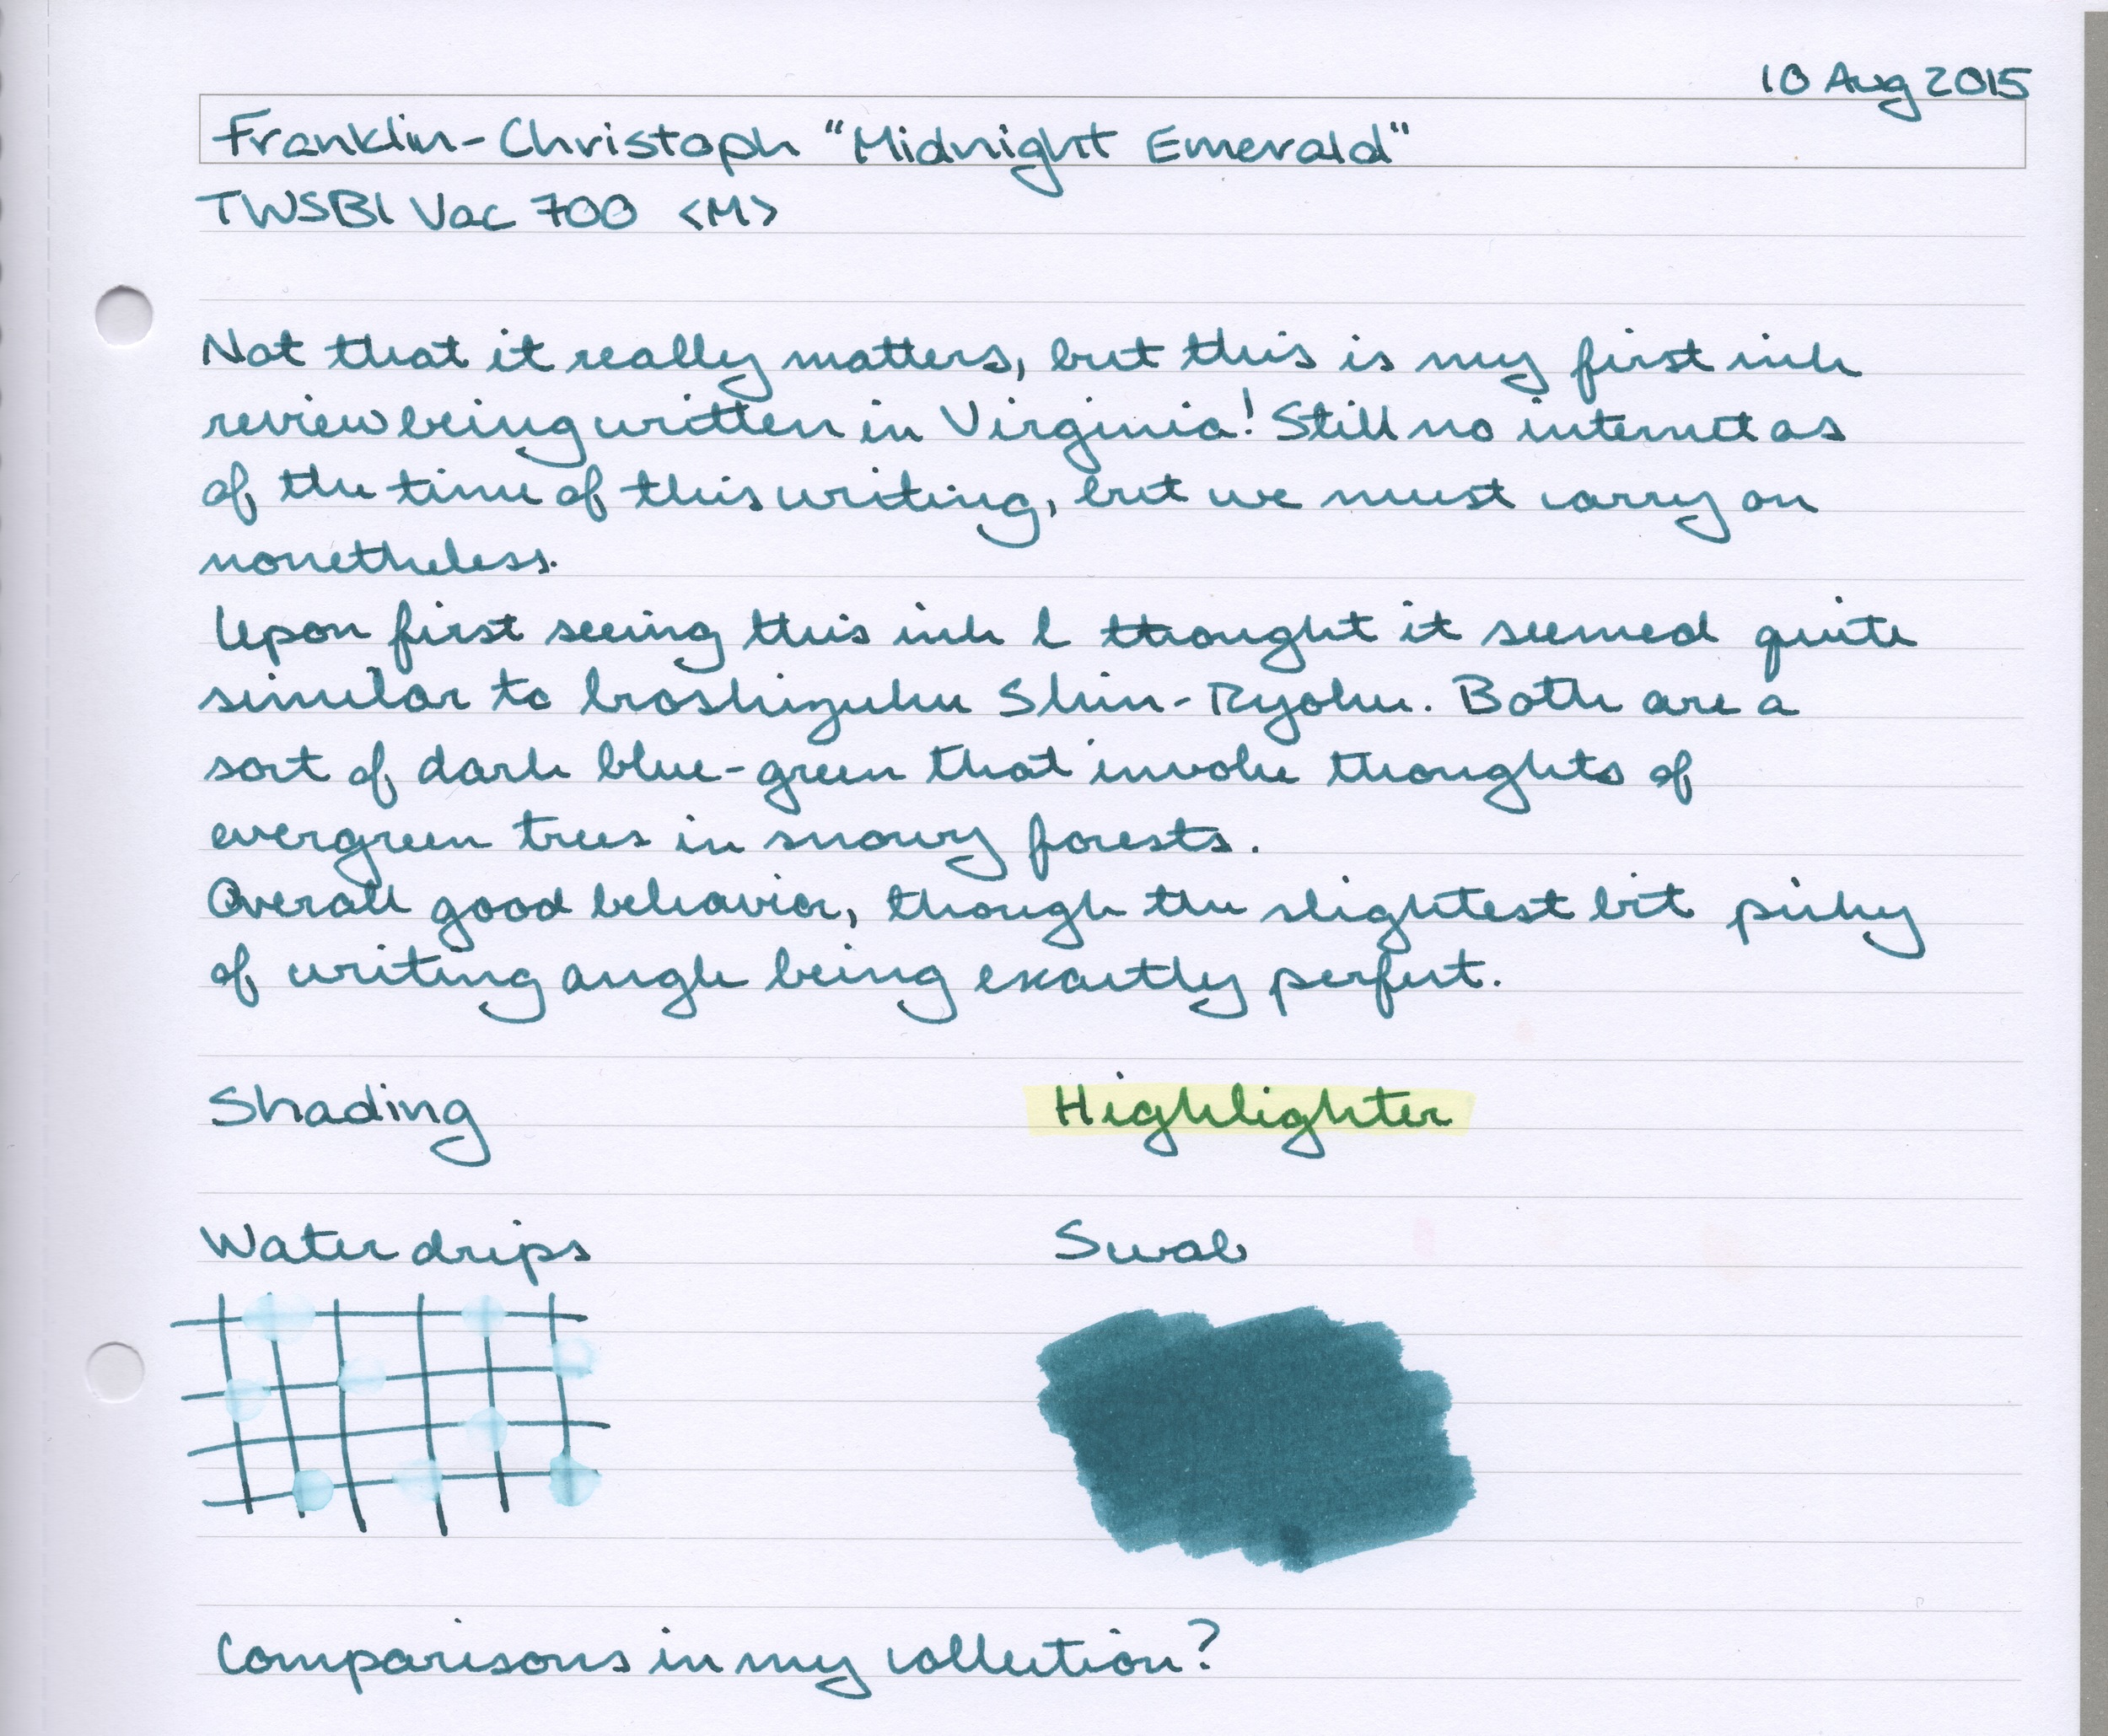 10 Aug 2015
Franklin-Christoph "Midnight Emerald"
TWSBI Vac 700 <M>
Not that it really matters, but this is my first ink
review being written in Virginia! Still no internet as
of the time of this writing, but we must carry on
nonetheless.
Upon first seeing this ink I thought it seemed quite
similar to Iroshizuku Shin-Ryoku. Both are a
sort of dark blue-green that invoke thoughts of
evergreen trees in snowy forests.
Overall good behavior, though the slightest bit picky
of writing angle being exactly perfect.
Shading
Highlighter
Water drips
Swab
Comparisons in my collection?